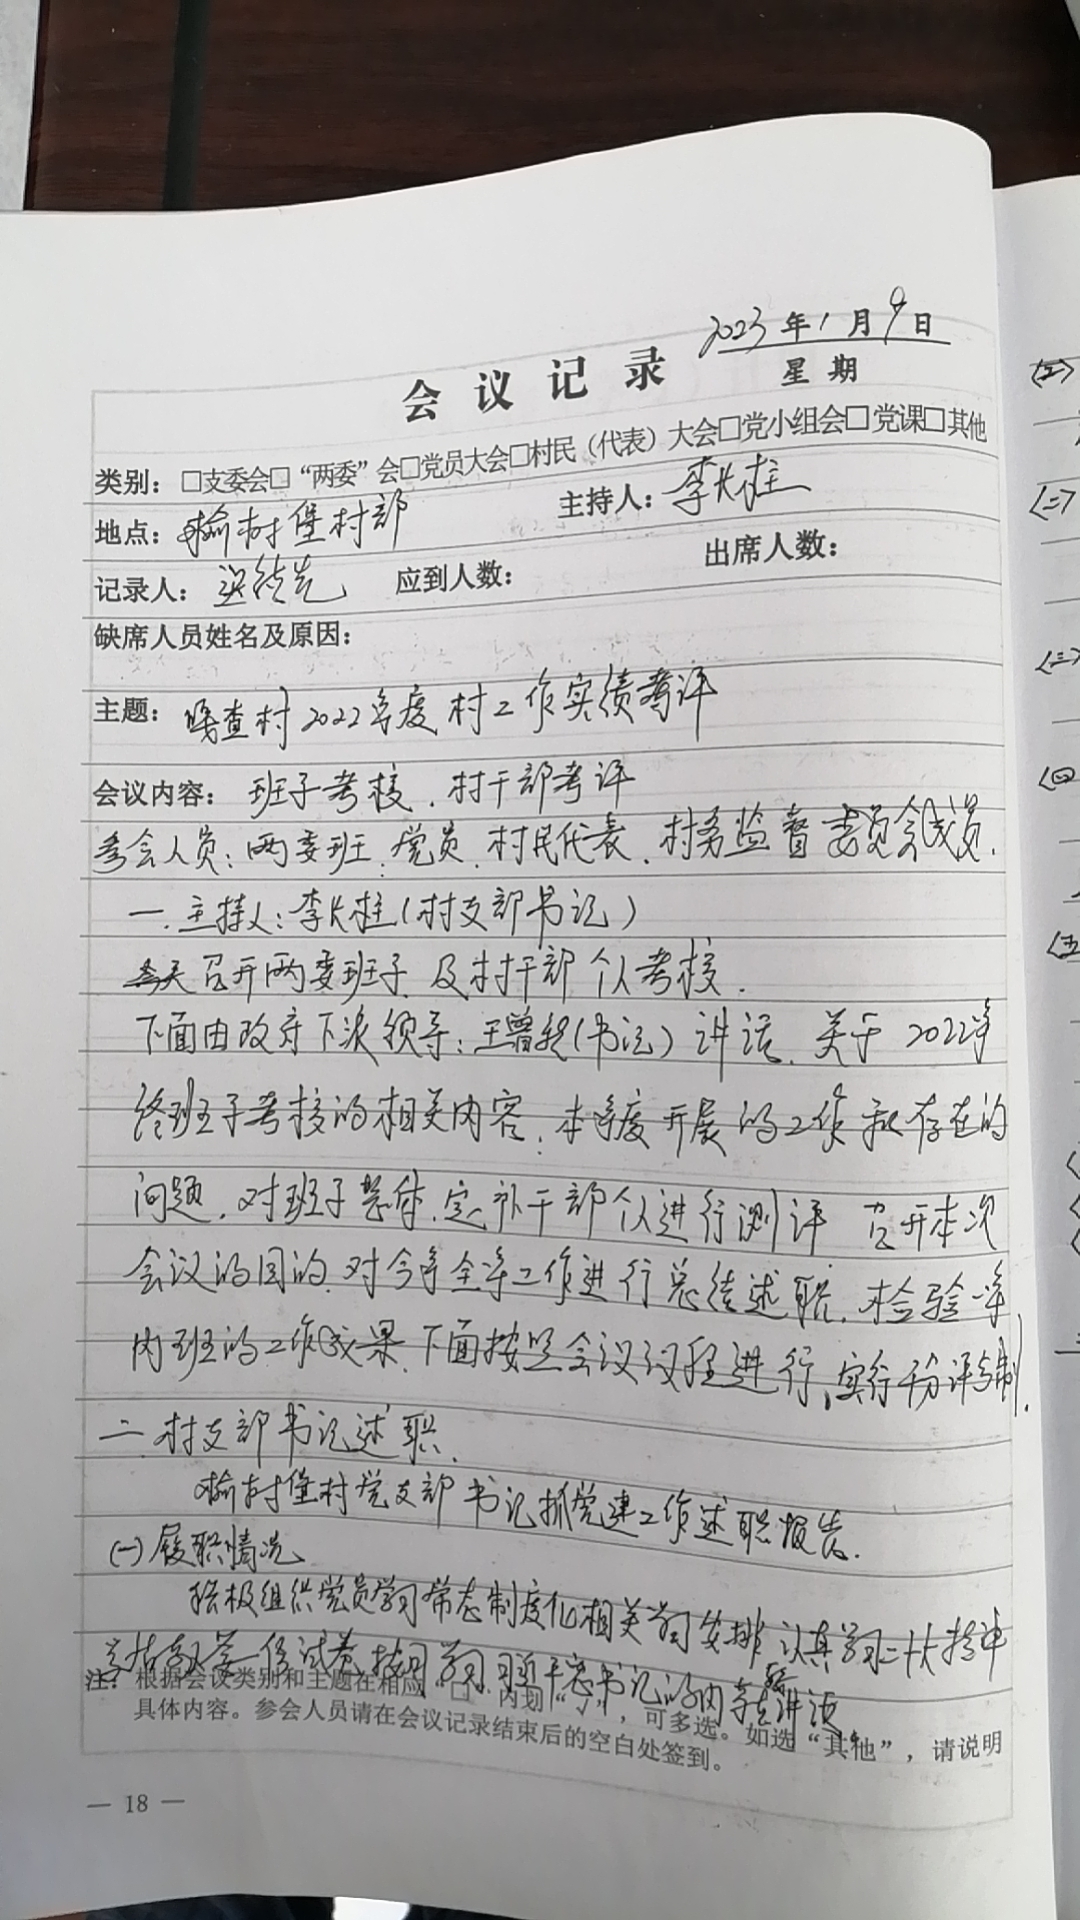 2023年1月9日
会议记录 星期
类别：□支委会□“两委”会□党员大会□村民（代表）大会□党小组会□党课□其他
地点：榆树堡村部 主持人：李长柱
记录人： 应到人数： 出席人数：
缺席人员姓名及原因：
主题：嘎查村2022年度村工作实绩考评
会议内容：班子考核、村干部考评
参会人员：两委班、党员、村民代表、村务监督委员会成员、
一、主持人：李长柱（村支部书记）
今天召开两委班子及村干部个人考核、
下面由政府下派领导：王曾（书记）讲话、关于2022年
终班子考核的相关内容、本年度开展的工作和存在的
问题、对班子整体、定补干部个人进行测评 召开本次
会议的目的、对今年全年工作进行总结述职、检验一年
内班的工作成果、下面按照会议议程进行、实行千分评制、
二、村支部书记述职、
榆树堡村党支部书记抓党建工作述职报告、
(一)履职情况
积极组织党员学习常态制度化相关学习安排 认真学习二十大精神
学习习近平总书记的内蒙讲话
注：根据会议类别和主题在相应“□”内划“√”，可多选。如选“其他”，请说明
具体内容。参会人员请在会议记录结束后的空白处签到。
— 18 —
(二)
(三)
(四
(五